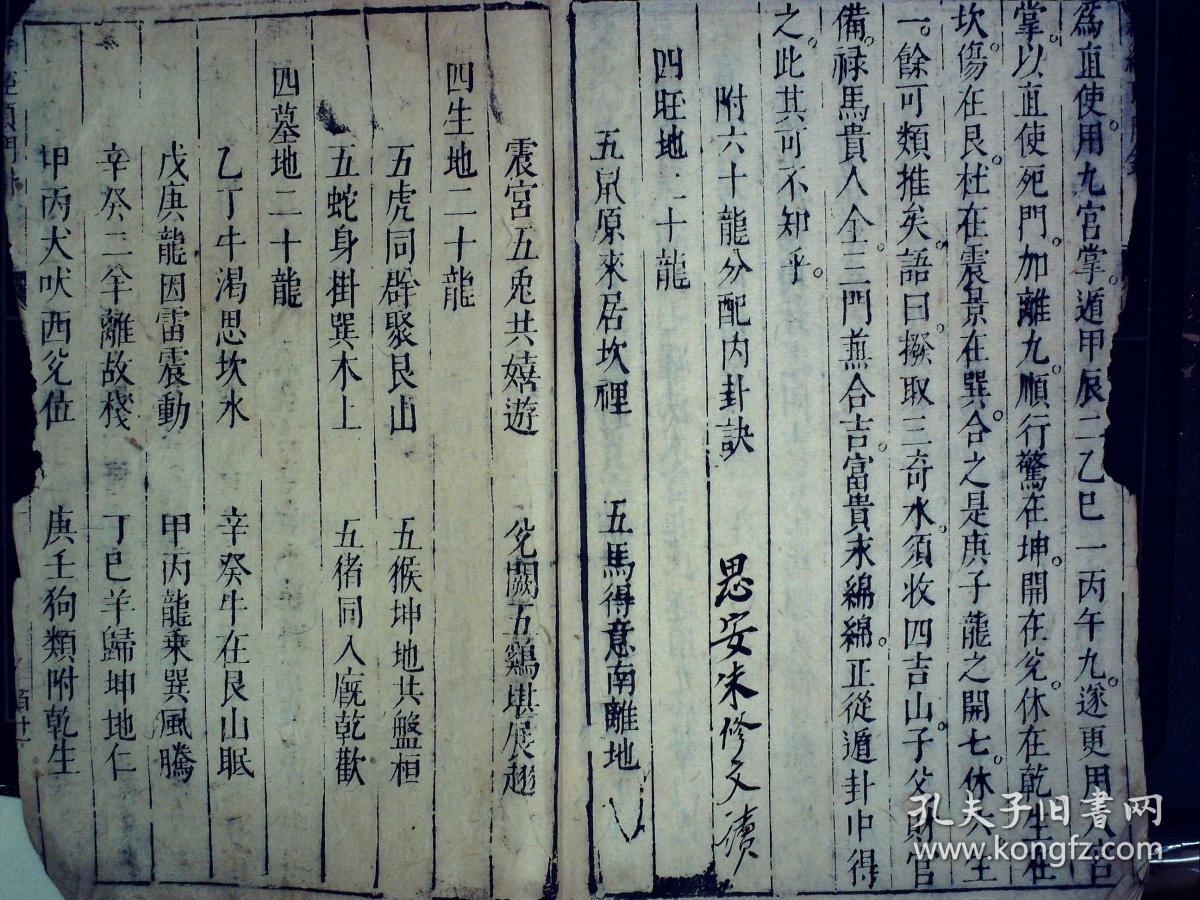 為直使用九宮掌遁甲辰二乙巳一丙午九遂更用八宮
掌以直使死門加離九順行驚在坤開在兊休在乾生在
坎傷在艮杜在震景在巽合之是庚子龍之開七休六生
一餘可類推矣語曰撥取三奇水須收四吉山子父財官
備祿馬貴人全三門兼合吉富貴永綿綿正從遁卦中得
之此其可不知乎
附六十龍分配內卦訣
思安朱修文讀
四旺地二十龍
五鼠原來居坎裡 五馬得意南離地
震宮五兎共嬉遊 兊闕五鷄堪展翅
四生地二十龍
五虎同群聚艮山 五猴坤地共盤桓
五蛇身掛巽木上 五猪同入廐乾歡
四墓地二十龍
乙丁牛渴思坎水 辛癸牛在艮山眠
戊庚龍因雷震動 甲丙龍乘巽風騰
辛癸二羊離故棧 丁巳羊歸坤地仁
甲丙犬吠西兊位 庚壬狗類附乾生
孔夫子旧書网
www.kongfz.com